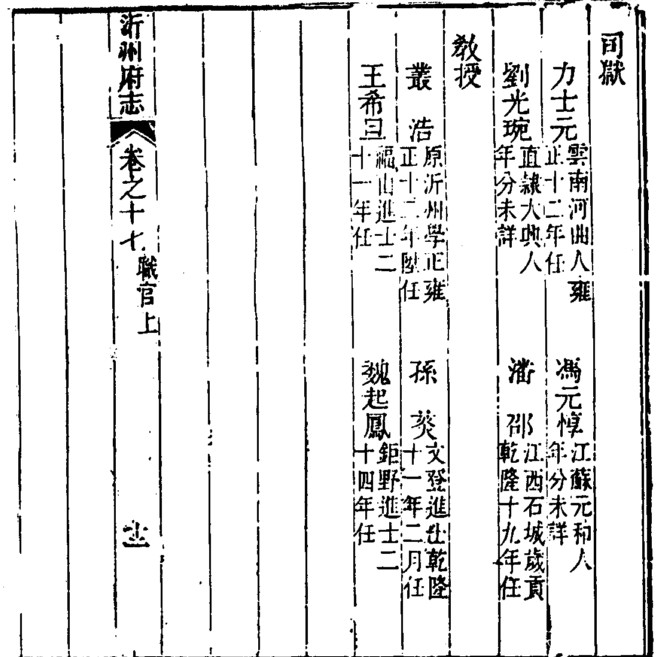 司獄
力士元 雲南河曲人雍正十二年任 馮元惇 江蘇元和人年分未詳
劉光琬 直隸大興人年分未詳 潘邵 江西石城歲貢乾隆十九年任
教授
叢浩 原沂州學正雍正十二年陞任 孫葵 文登進士乾隆十一年二月任
王希旦 福山進士二十一年任 魏起鳳 鉅野進士二十四年任
沂州府志 卷之十七 職官上 十二